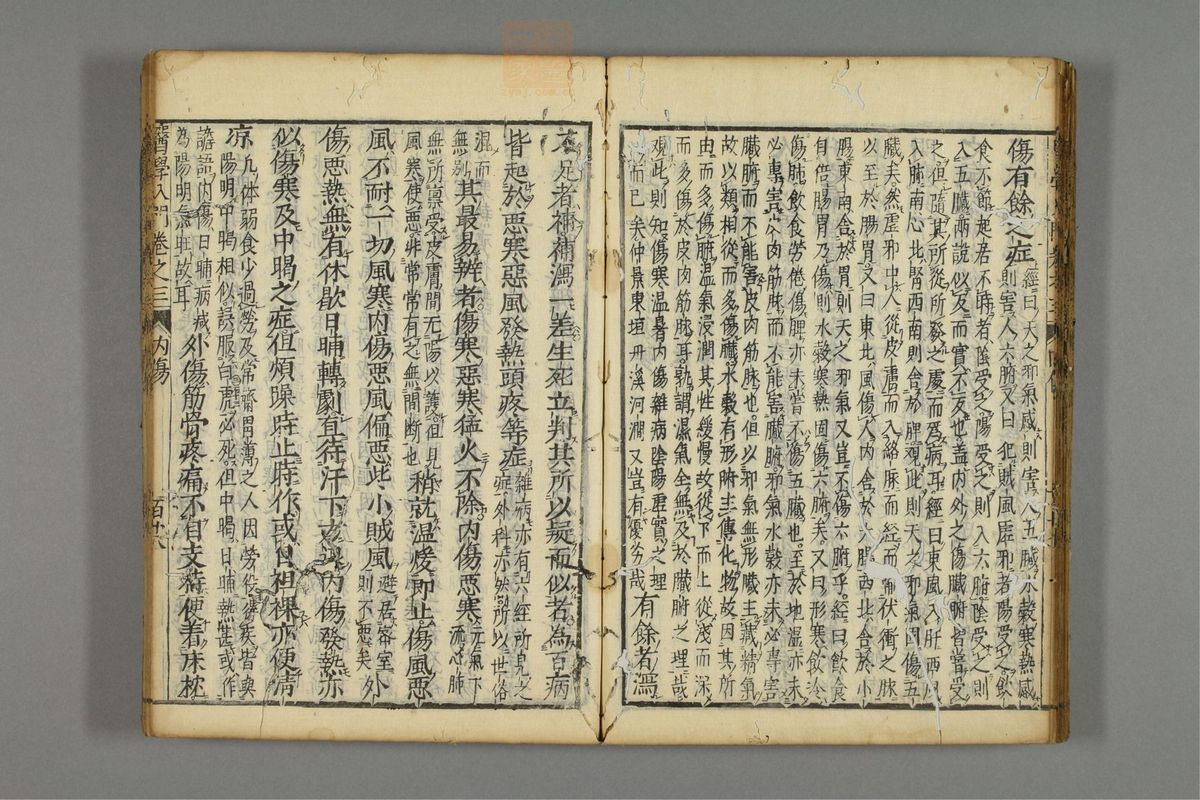 傷有餘之症
經曰天之邪氣感則害人五臟水穀寒熱感
則害人六腑又曰犯賊風虛邪者陽受之飲
食不節起居不時者陰受之陽受之則入六腑陰受之則
入五臟兩說似反而實不反也蓋內外之傷臟腑皆當受
之但隨其所從所發之處而為病耳經曰東風入肝西風
入肺南心北腎西南則舍於脾觀此則天之邪氣固傷五
臟矣然虛邪中人從皮膚而入絡脈而經而輸伏衝之脈
以至於腸胃又曰東北風傷人內舍於大腸西北舍於小
腸東南舍於胃則天之邪氣又豈不傷六腑乎經曰飲食
自倍腸胃乃傷則水穀寒熱固傷六腑矣又曰形寒飲冷
傷肺飲食勞倦傷脾亦未嘗不傷五臟也至於地濕亦未
必專害人肉筋脈而不能害臟腑邪氣水穀亦未必專害
臟腑而不能害皮肉筋脈也但以邪氣無形臟主藏精氣
故以類相從而多傷臟水穀有形腑主傳化物故因其所
由而多傷腑濕氣浸潤其性緩慢故從下而上從淺而深
而多傷於皮肉筋脈耳孰謂濕氣全無及於臟腑之理哉
觀此則知傷寒溫暑內傷雜病陰陽虛實之理
而已矣仲景東垣丹溪河間又豈有優劣哉有餘者瀉
不足者補補瀉一差生死立判其所以疑而似者為百病
皆起於惡寒惡風發熱頭疼等症雜病亦有六經所見之
症外科亦然所以世俗
混而
無別其最易辨者傷寒惡寒猛火不除內傷惡寒元氣下
流心肺
無所稟受皮膚間無陽以護但見
風寒便惡非常常有之無間斷也稍就溫煖即止傷風惡
風不耐一切風寒內傷惡風偏惡些小賊風避居密室
則不惡矣外
傷惡熱無有休歇日晡轉劇直待汗下方退內傷發熱亦
似傷寒及中暍之症但煩躁時止時作或日袒裸亦便清
涼凡体弱食少過勞及常齋胃薄之人因勞役得疾皆與
陽明中暍相似誤服白虎必死但中暍日晡熱甚或作
譫語內傷日晡病減
為陽明氣旺故耳外傷筋骨疼痛不自支持便着床枕
醫學入門 卷之三 內傷